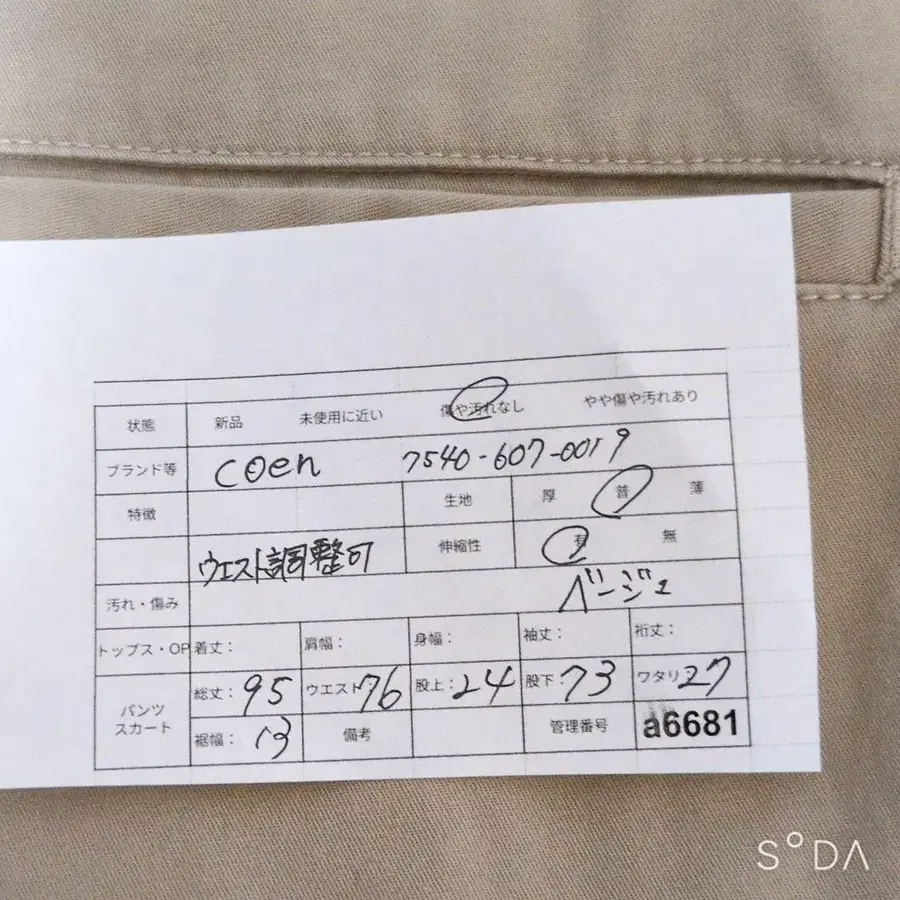 状態 新品 未使用に近い 傷や汚れなし やや傷や汚れあり
ブランド等 coen 7540-607-0019
特徴 生地 厚 普 薄
ウエスト調整可 伸縮性 有 無
汚れ・傷み ベージュ
トップス・OP 着丈: 肩幅: 身幅: 袖丈: 裄丈:
パンツ スカート 総丈: 95 ウエスト 76 股上: 24 股下: 73 ワタリ 27
裾幅: 13 備考 管理番号 a6681
SODA